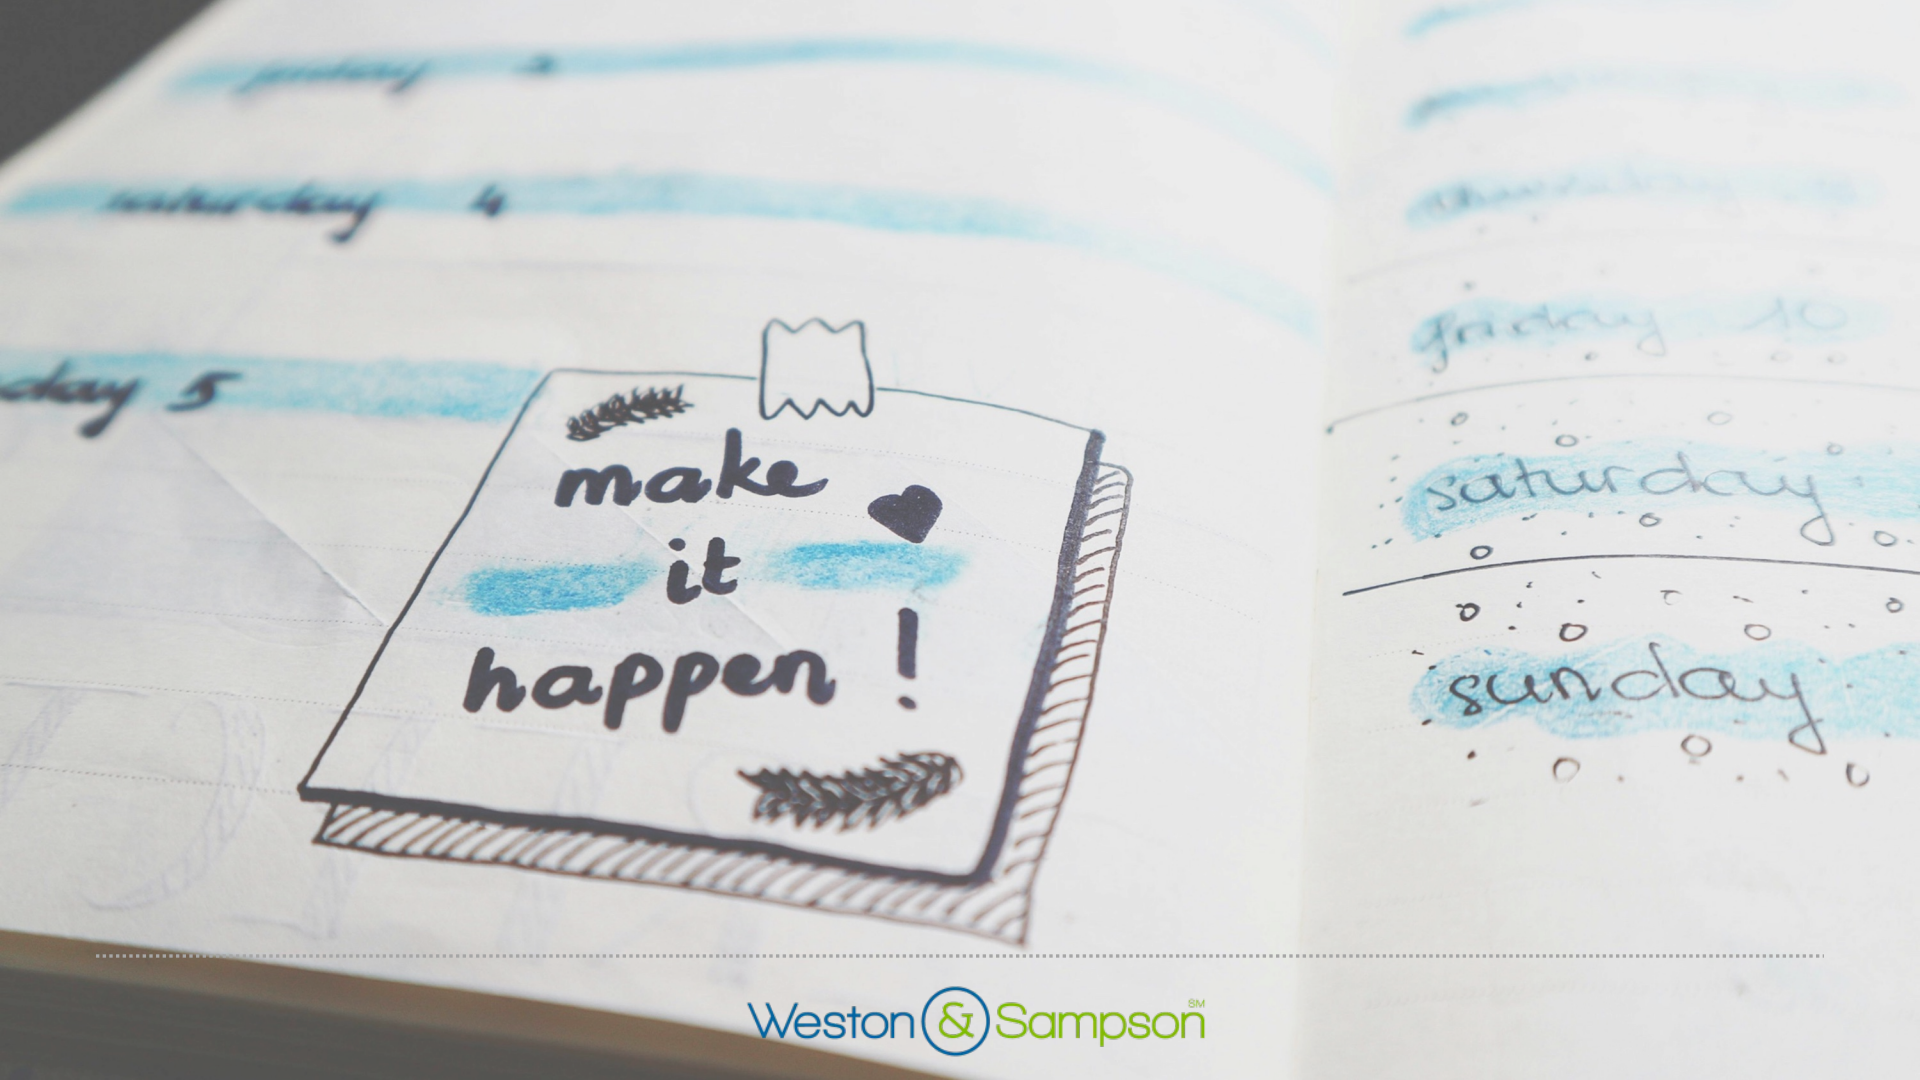 friday 3
saturday 4
day 5
make
it
happen !
friday 10
saturday
sunday
Weston & Sampson SM